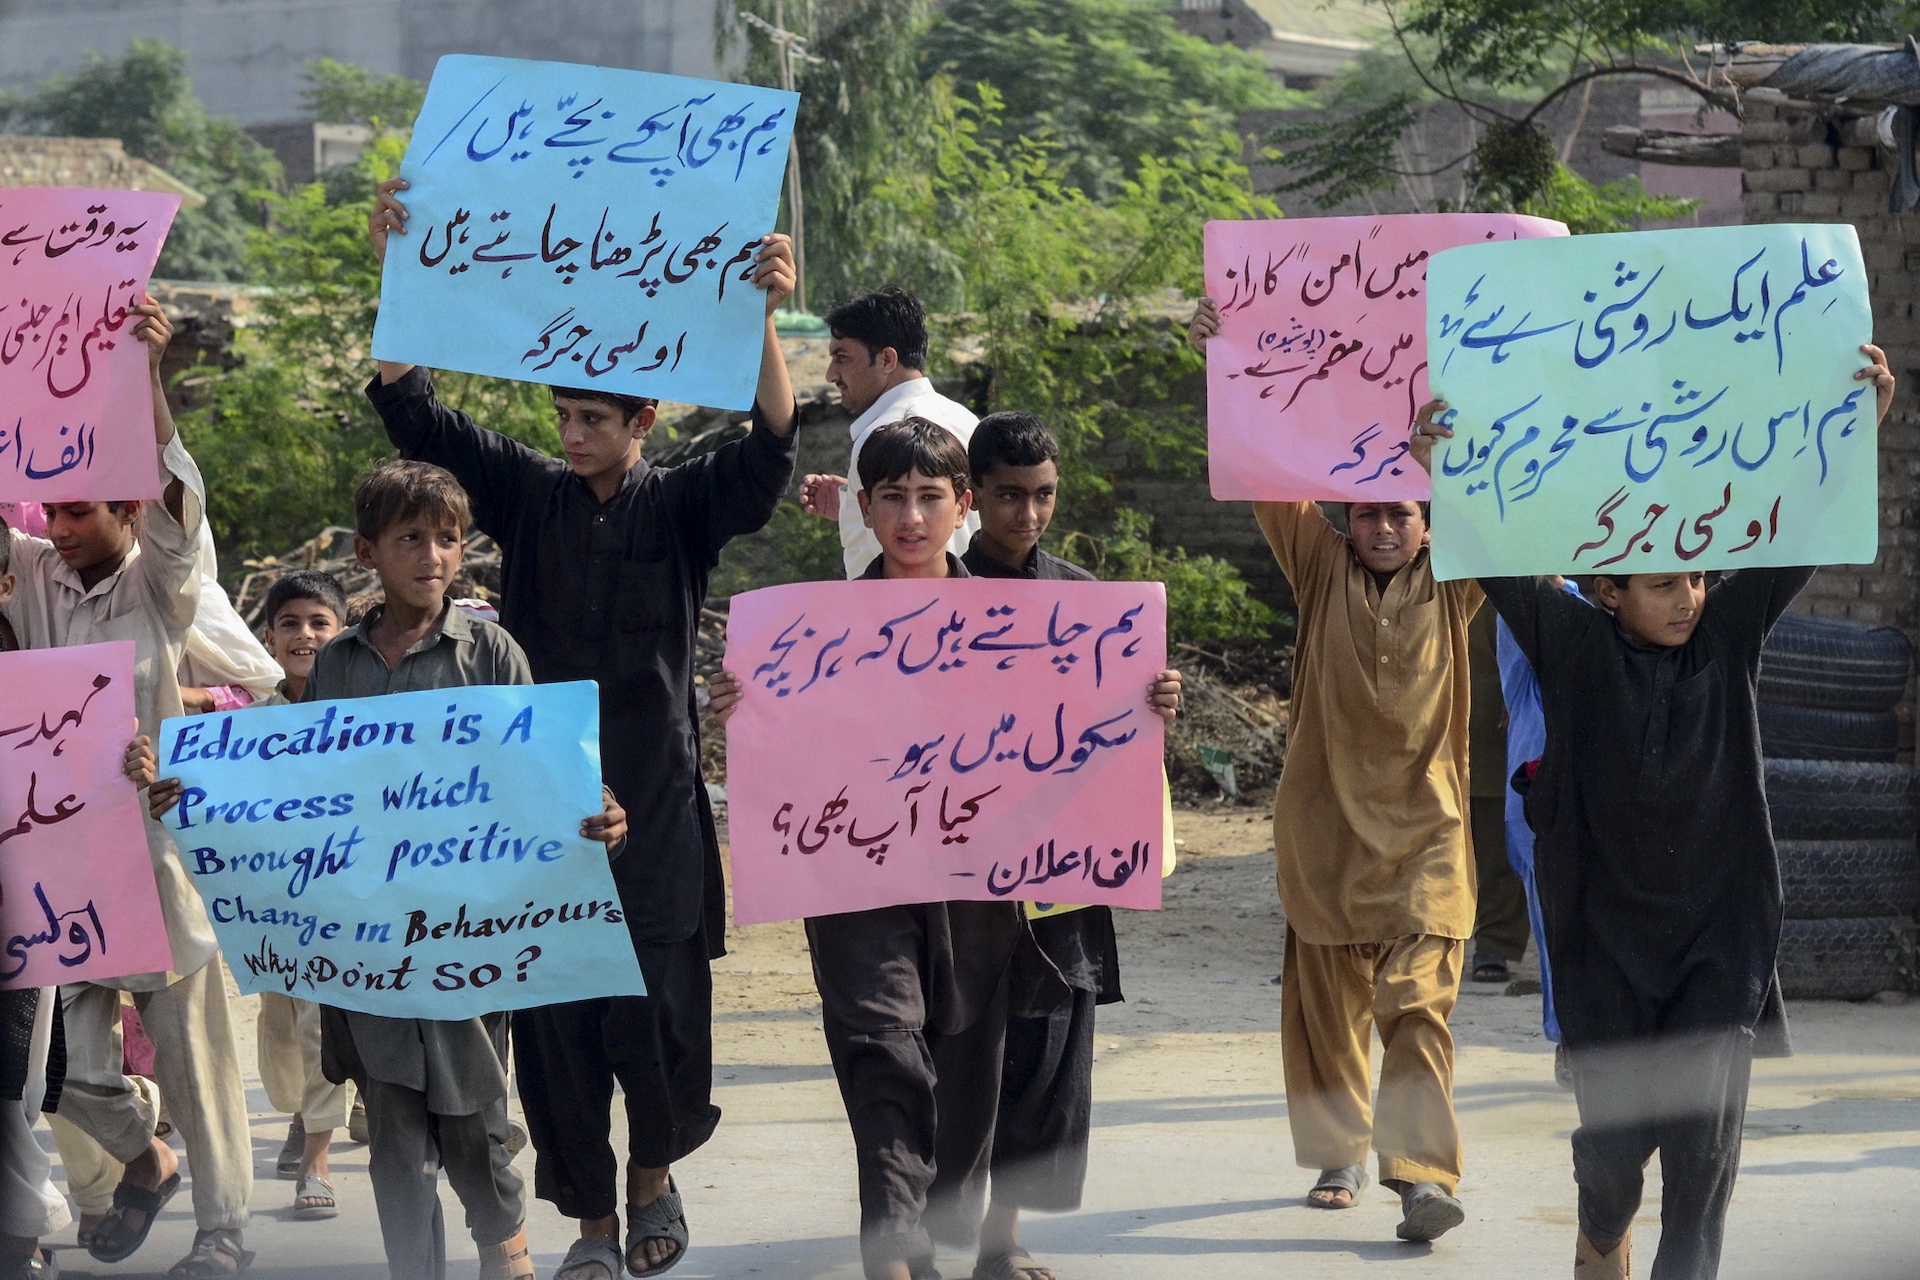 یہ وقت ہے
تعلیم ایمرجنسی
الف ا
مہد
علم
اولسی
ہم بھی آپکے بچے ہیں /
ہم بھی پڑھنا چاہتے ہیں
اولسی جرگہ
Education is A
Process Which
Brought positive
Change in Behaviours
Why Do'nt So?
ہم چاہتے ہیں کہ ہر بچہ
سکول میں ہو۔
کیا آپ بھی؟
الف اعلان -
میں "امن" کا راز
(پوشیدہ)
میں مضمر ہے۔
جرگہ
عِلم ایک روشنی ہے
ہم اِس روشنی سے محروم کیوں؟
اولسی جرگہ